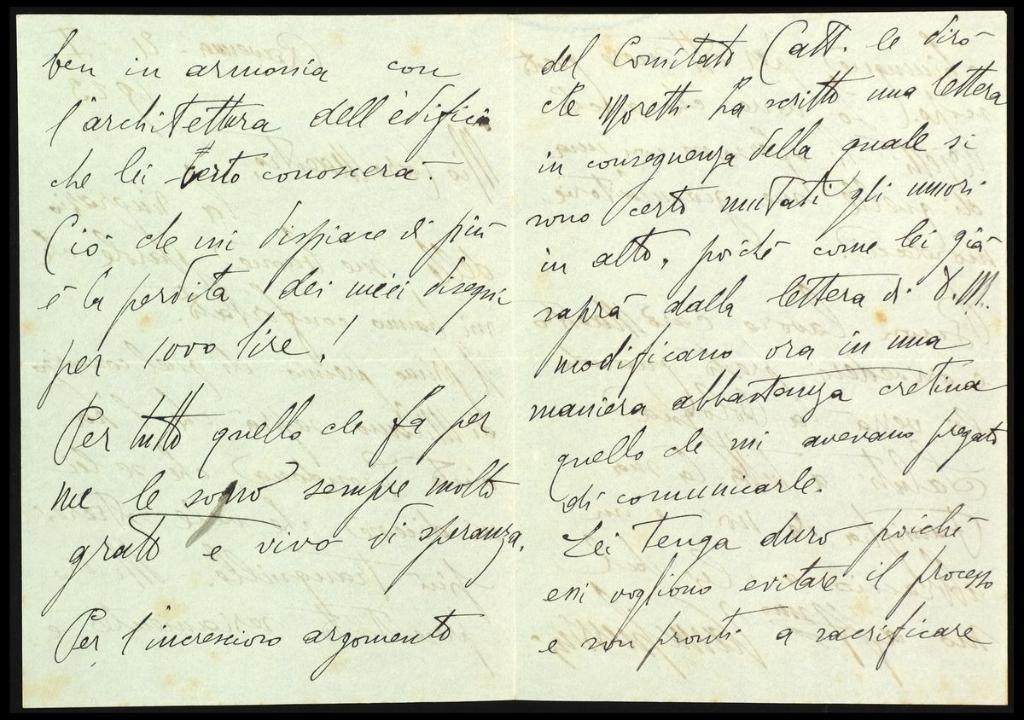 ben in armonia con
l'architettura dell'edificio
che lei certo conoscerà.
Ciò che mi dispiace di più
è la perdita dei miei disegni
per 1000 lire!
Per tutto quello che fa per
me le sono sempre molto
grato e vivo di speranza.
Per l'increscioso argomento
del Comitato Catt. le dirò
che Moretti ha scritto una lettera
in conseguenza della quale si
sono certo mutati gli umori
in alto, poichè come lei già
saprà dalla lettera di M.
modificano ora in una
maniera abbastanza cretina
quello che mi avevano pregato
di comunicarle.
Lei tenga duro poichè
essi vogliono evitare il processo
e son pronti a sacrificare